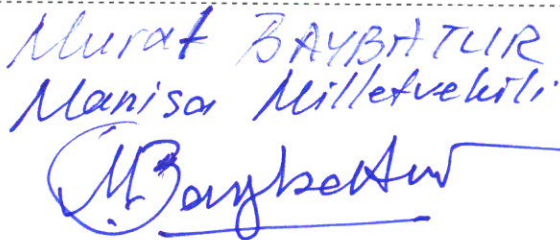 Murat BAYBATUR
Manisa Milletvekili
M. Baybatur